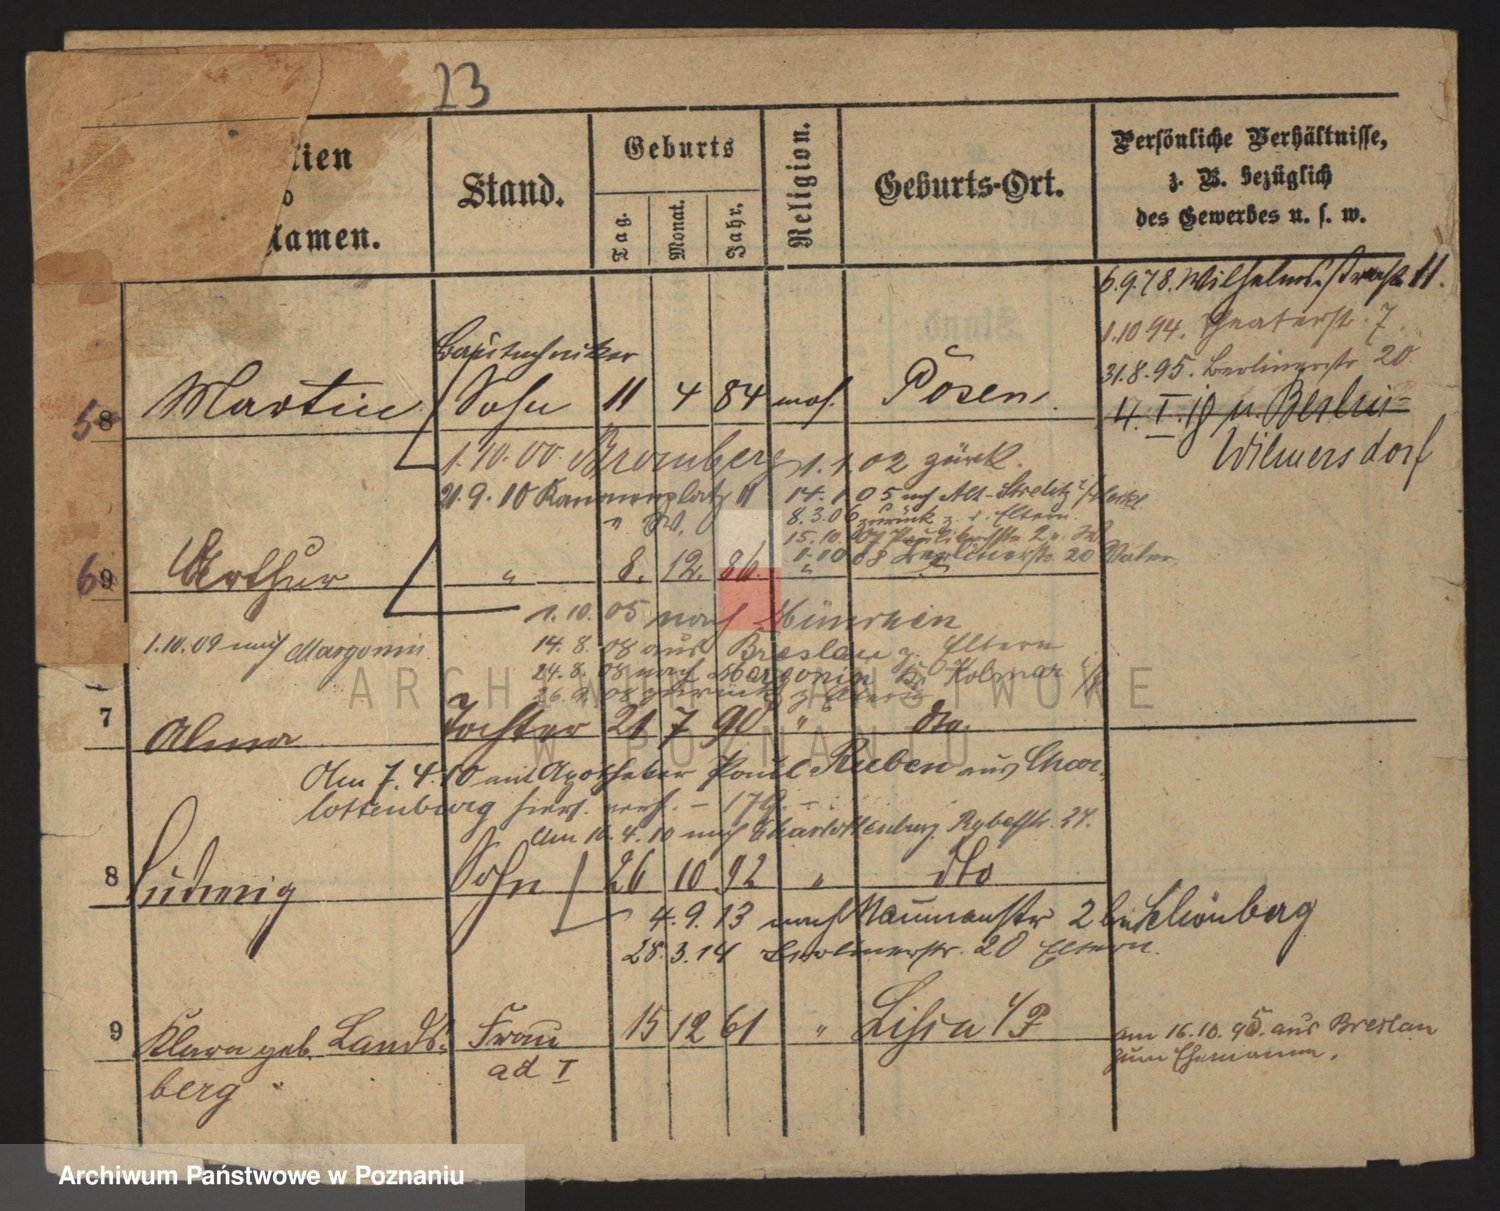 23
lien
Namen.
Stand.
Geburts
Tag.
Monat.
Jahr.
Religion.
Geburts-Ort.
Persönliche Verhältnisse,
z. B. bezüglich
des Gewerbes u. s. w.
6.9.78. Wilhelmstraße 11.
1.10 94. Theaterstr. 7.
31.8.95. Berlinerstr 20.
Berlin-
Wilmersdorf
Bautechniker
58 Martin Sohn 11 4 84 mos. Posen.
1.10.00. Bromberg 1.1.02 zurück.
21.9.10 Kannenplatz 11 14.1.05 nach Alt-Strelitz i/Meckl.
8.3.06 zurück z. d. Eltern.
15.10.07 Paulikirchstr 2
1.10 08 Berlinerstr. 20 Vater
69 Arthur " 8. 12. 86. " "
1.10.05 nach München
1.10.09 nach Margonin
14.8.08 aus Breslau z. Eltern
24.8.08 nach Margonin Kr Kolmar i/P
26.9.08 zurück z Eltern
7 Alma Tochter 21 7 90 " dto.
Am 7.4.10 mit Apotheker Paul Rieben aus Char-
lottenburg hiers. verh.
Am 10.4.10 nach Charlottenburg
8 Ludwig Sohn 26 10 92 " dto
4.9.13 nach Naumannstr 2 bei Schönberg
28.3.14 Berlinerstr. 20 Eltern.
9 Klara geb. Lands- Frau 15 12 61 " Lissa i/P
berg ad I
am 16.10.95. aus Breslau
zum Ehemann.
ARCHIWUM PAŃSTWOWE
W POZNANIU
Archiwum Państwowe w Poznaniu